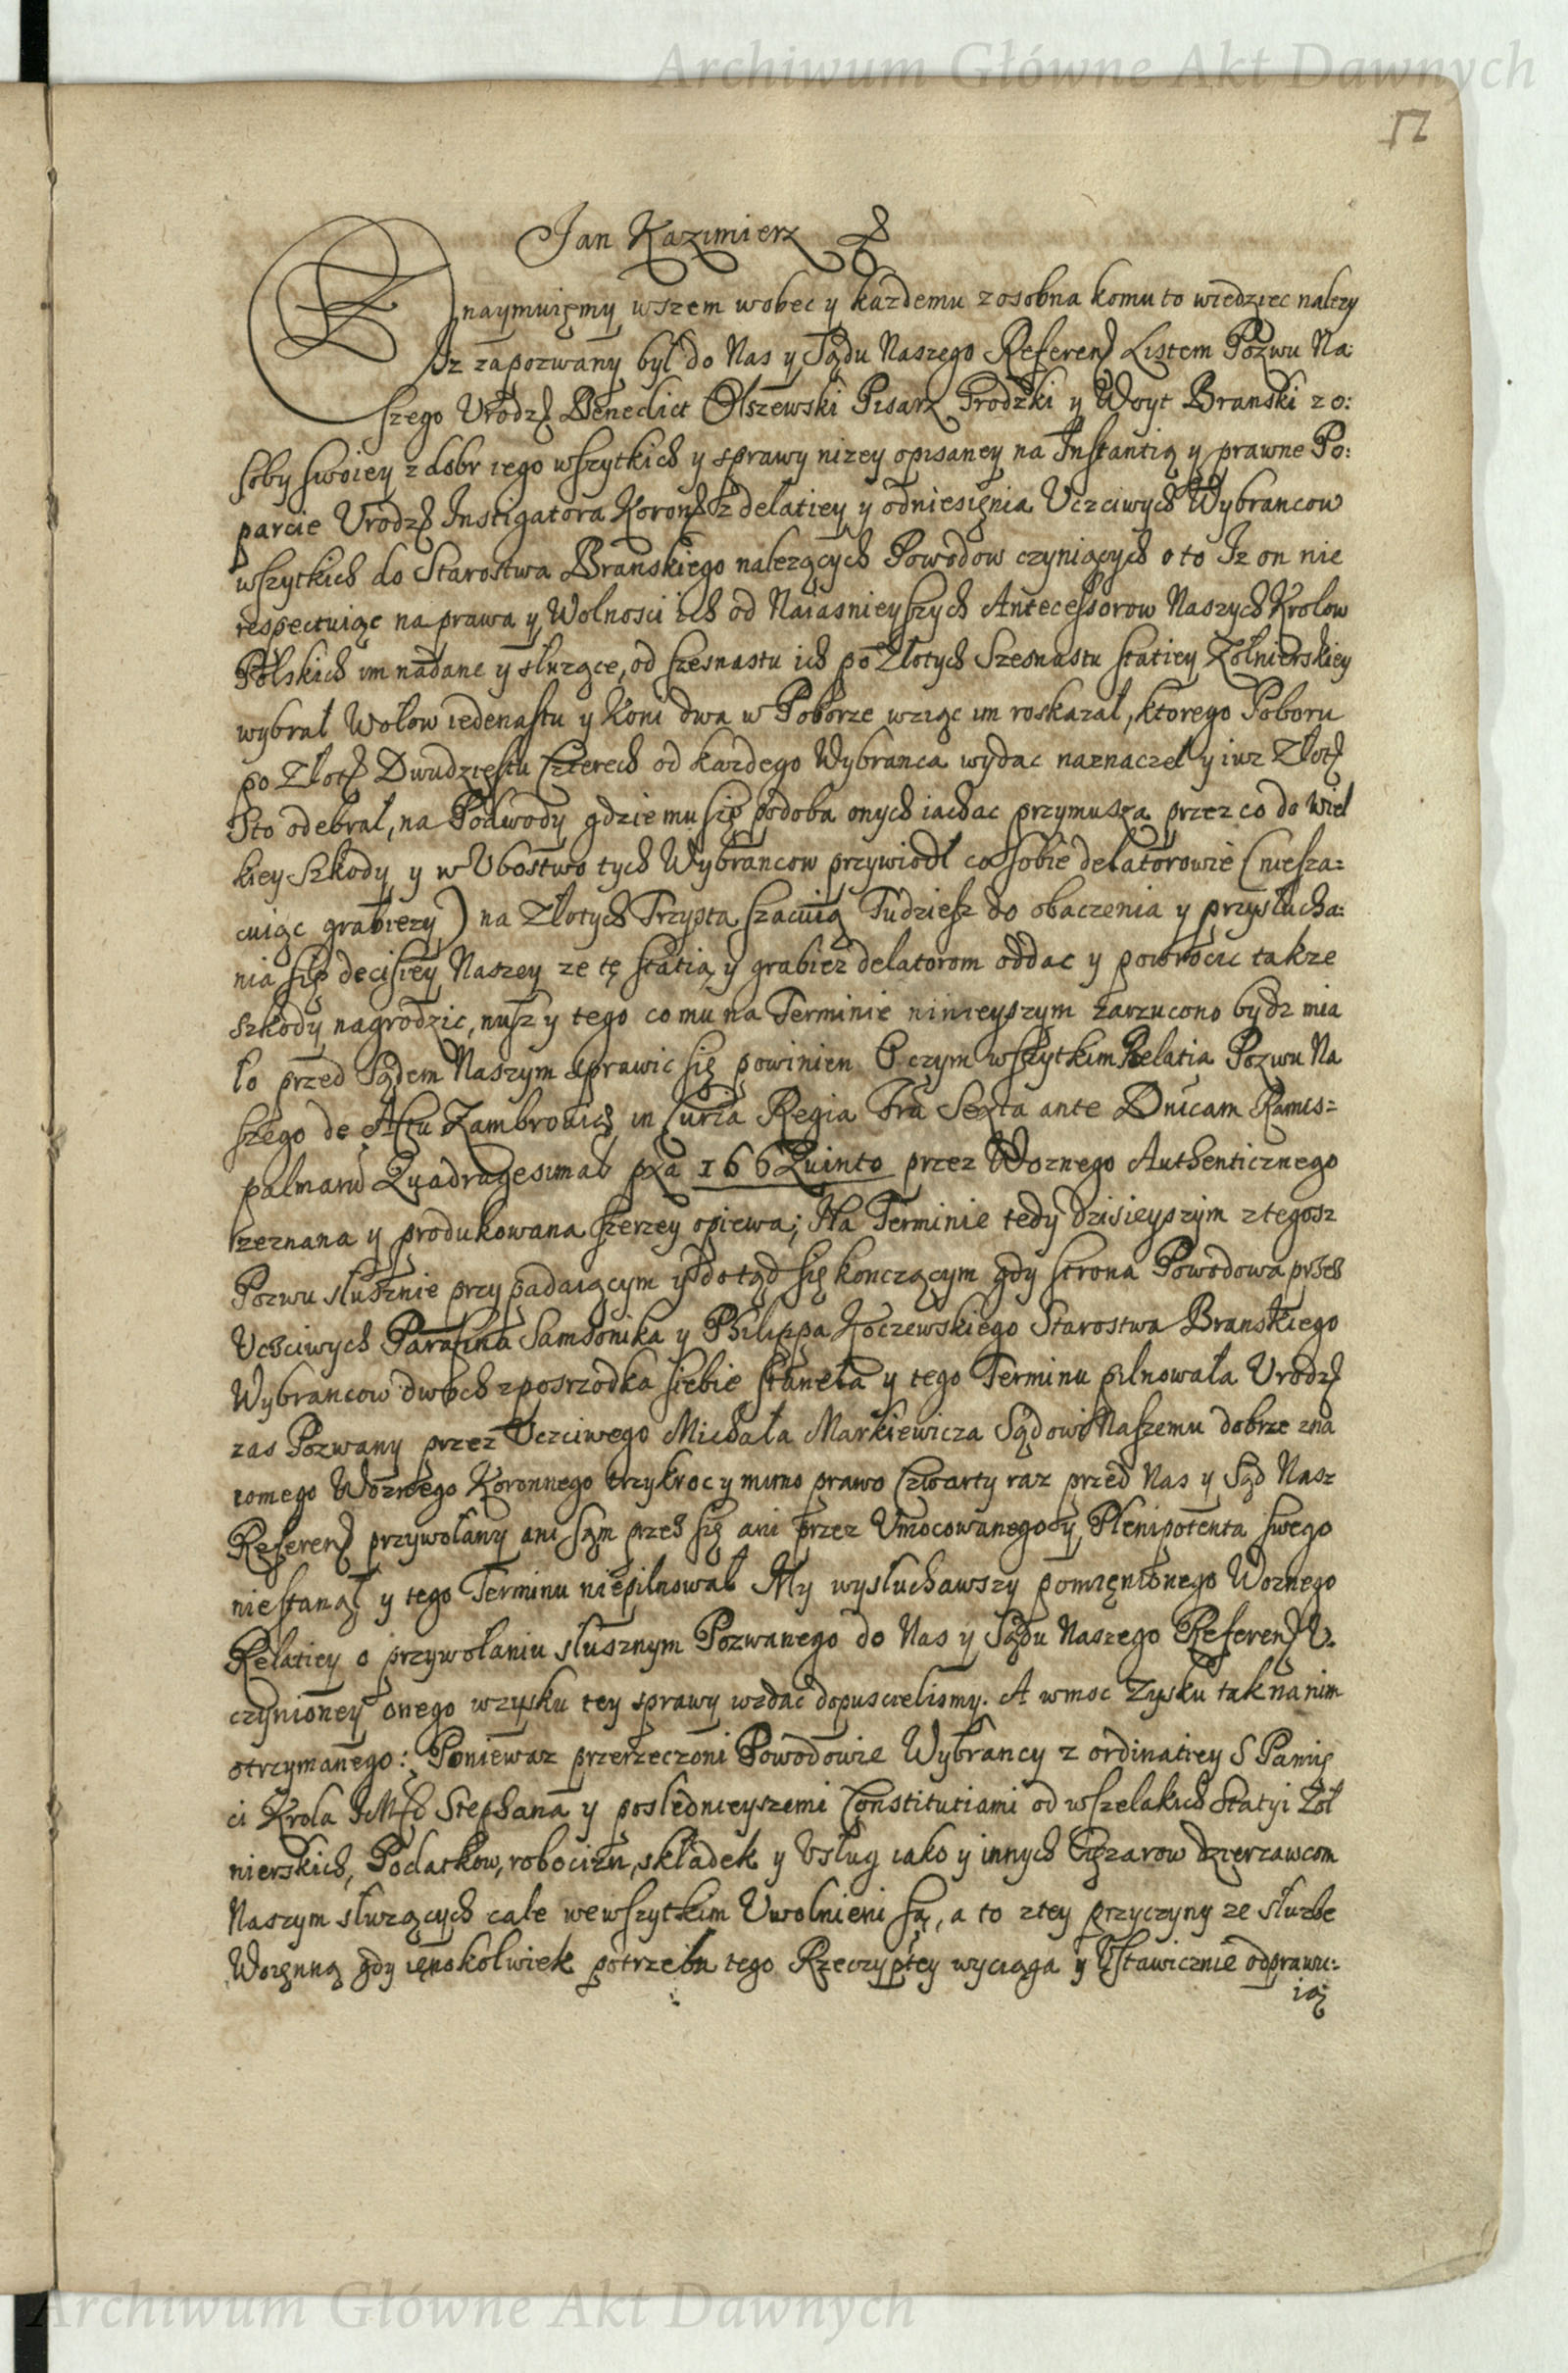 Archiwum Główne Akt Dawnych
Jan Kazimierz
Znaymuięmy wszem wobec y kazdemu zosobna komu to wiedziec nalezy
Iz zapozwany był do Nas y Sądu Naszego Referen Listem Pozwu Na
szego Urodz Benedict Olszewski Pisarz Grodzki y Woyt Branski zo:
soby swoiey z dobr iego wszytkich y sprawy nizey opisaney na Instantią y prawne Po:
parcie Urodz Instigatora Koron z delatiey y odniesięnia Uczciwych Wybrancow
wszytkich do Starostwa Branskiego nalezących Powodow czyniących o to Iz on nie
respectuiąc na prawa y Wolnosci ich od Naiasnieyszych Antecessorow Naszych Krolow
Polskich im nadane y słuzące, od szesnastu ich po Złotych Szesnastu statiey Zołnierskiey
wybrał Wołow iedenastu y Koni dwa w Poborze wziąc im roskazał, ktorego Poboru
po Złot Dwudziestu Czterech od kazdego Wybranca wydac naznaczeł y iuz Złot
Sto odebrał, na Podwody gdzie mu się podoba onych iachac przymusza przez co do wiel
kiey Szkody y w Ubostwo tych Wybrancow przywiodł co sobie delatorowie (niesza:
cuiąc grabiezy) na Złotych Trzysta szacuią Tudziesz do obaczenia y przysłucha:
nia się decisiey Naszey ze tę statią y grabiez delatorom oddac y powrocic takze
szkody nagrodzic, nusz y tego co mu na Terminie ninieyszym zarzucono bydz mia
ło przed Sądem Naszym sprawic się powinien O czym wszytkim Relatia Pozwu Na
szego de Actu Zambrovien in Curia Regia Fria Sexta ante Dnicam Ramis=
palmaru Quadragesimal pxa 166 Quinto przez Woznego Authenticznego
zeznana y produkowana szerzey opiewa; Na Terminie tedy dzisieyszym z tegosz
Pozwu słusznie przypadaiącym y dotąd się konczącym gdy strona Powodowa przes
Ucsciwych Parafina Samsonika y Philippa Koczewskiego Starostwa Branskiego
Wybrancow dwoch z posrzodka siebie stanęła y tego Terminu pilnowała Urodz
zas Pozwany przez Uczciwego Michała Markiewicza Sądowi Naszemu dobrze zna
iomego Woznego Koronnego trzykroc y mimo prawo Czwarty raz przed Nas y Sąd Nasz
Referen przywołany ani sąm przes się ani przez Umocowanego y Plenipotenta swego
niestanął y tego Terminu niepilnował My wysłuchawszy pomięnionego Woznego
Relatiey o przywołaniu słusznym Pozwanego do Nas y Sądu Naszego Referen U.
czynioney onego wzysku tey sprawy wzdac dopuscielismy. A wmoc Zysku tak na nim
otrzymanego: Poniewaz przerzeczoni Powodowie Wybrancy z ordinatiey S Pamię
ci Krola JMsc Stephana y poslednieyszemi Constitutiami od wszelakich Statyi Zoł
nierskich, Podatkow, robocizn, składek y Usług iako y innych Cięzarow dzierzawcom
Naszym słuzących cale wewszytkim Uwolnieni są, a to z tey przyczyny ze słuzbe
Woięnną gdy ięnokolwiek potrzeba tego Rzeczyptey wyciąga y Ustawicznie odprawu:
ią
Archiwum Główne Akt Dawnych